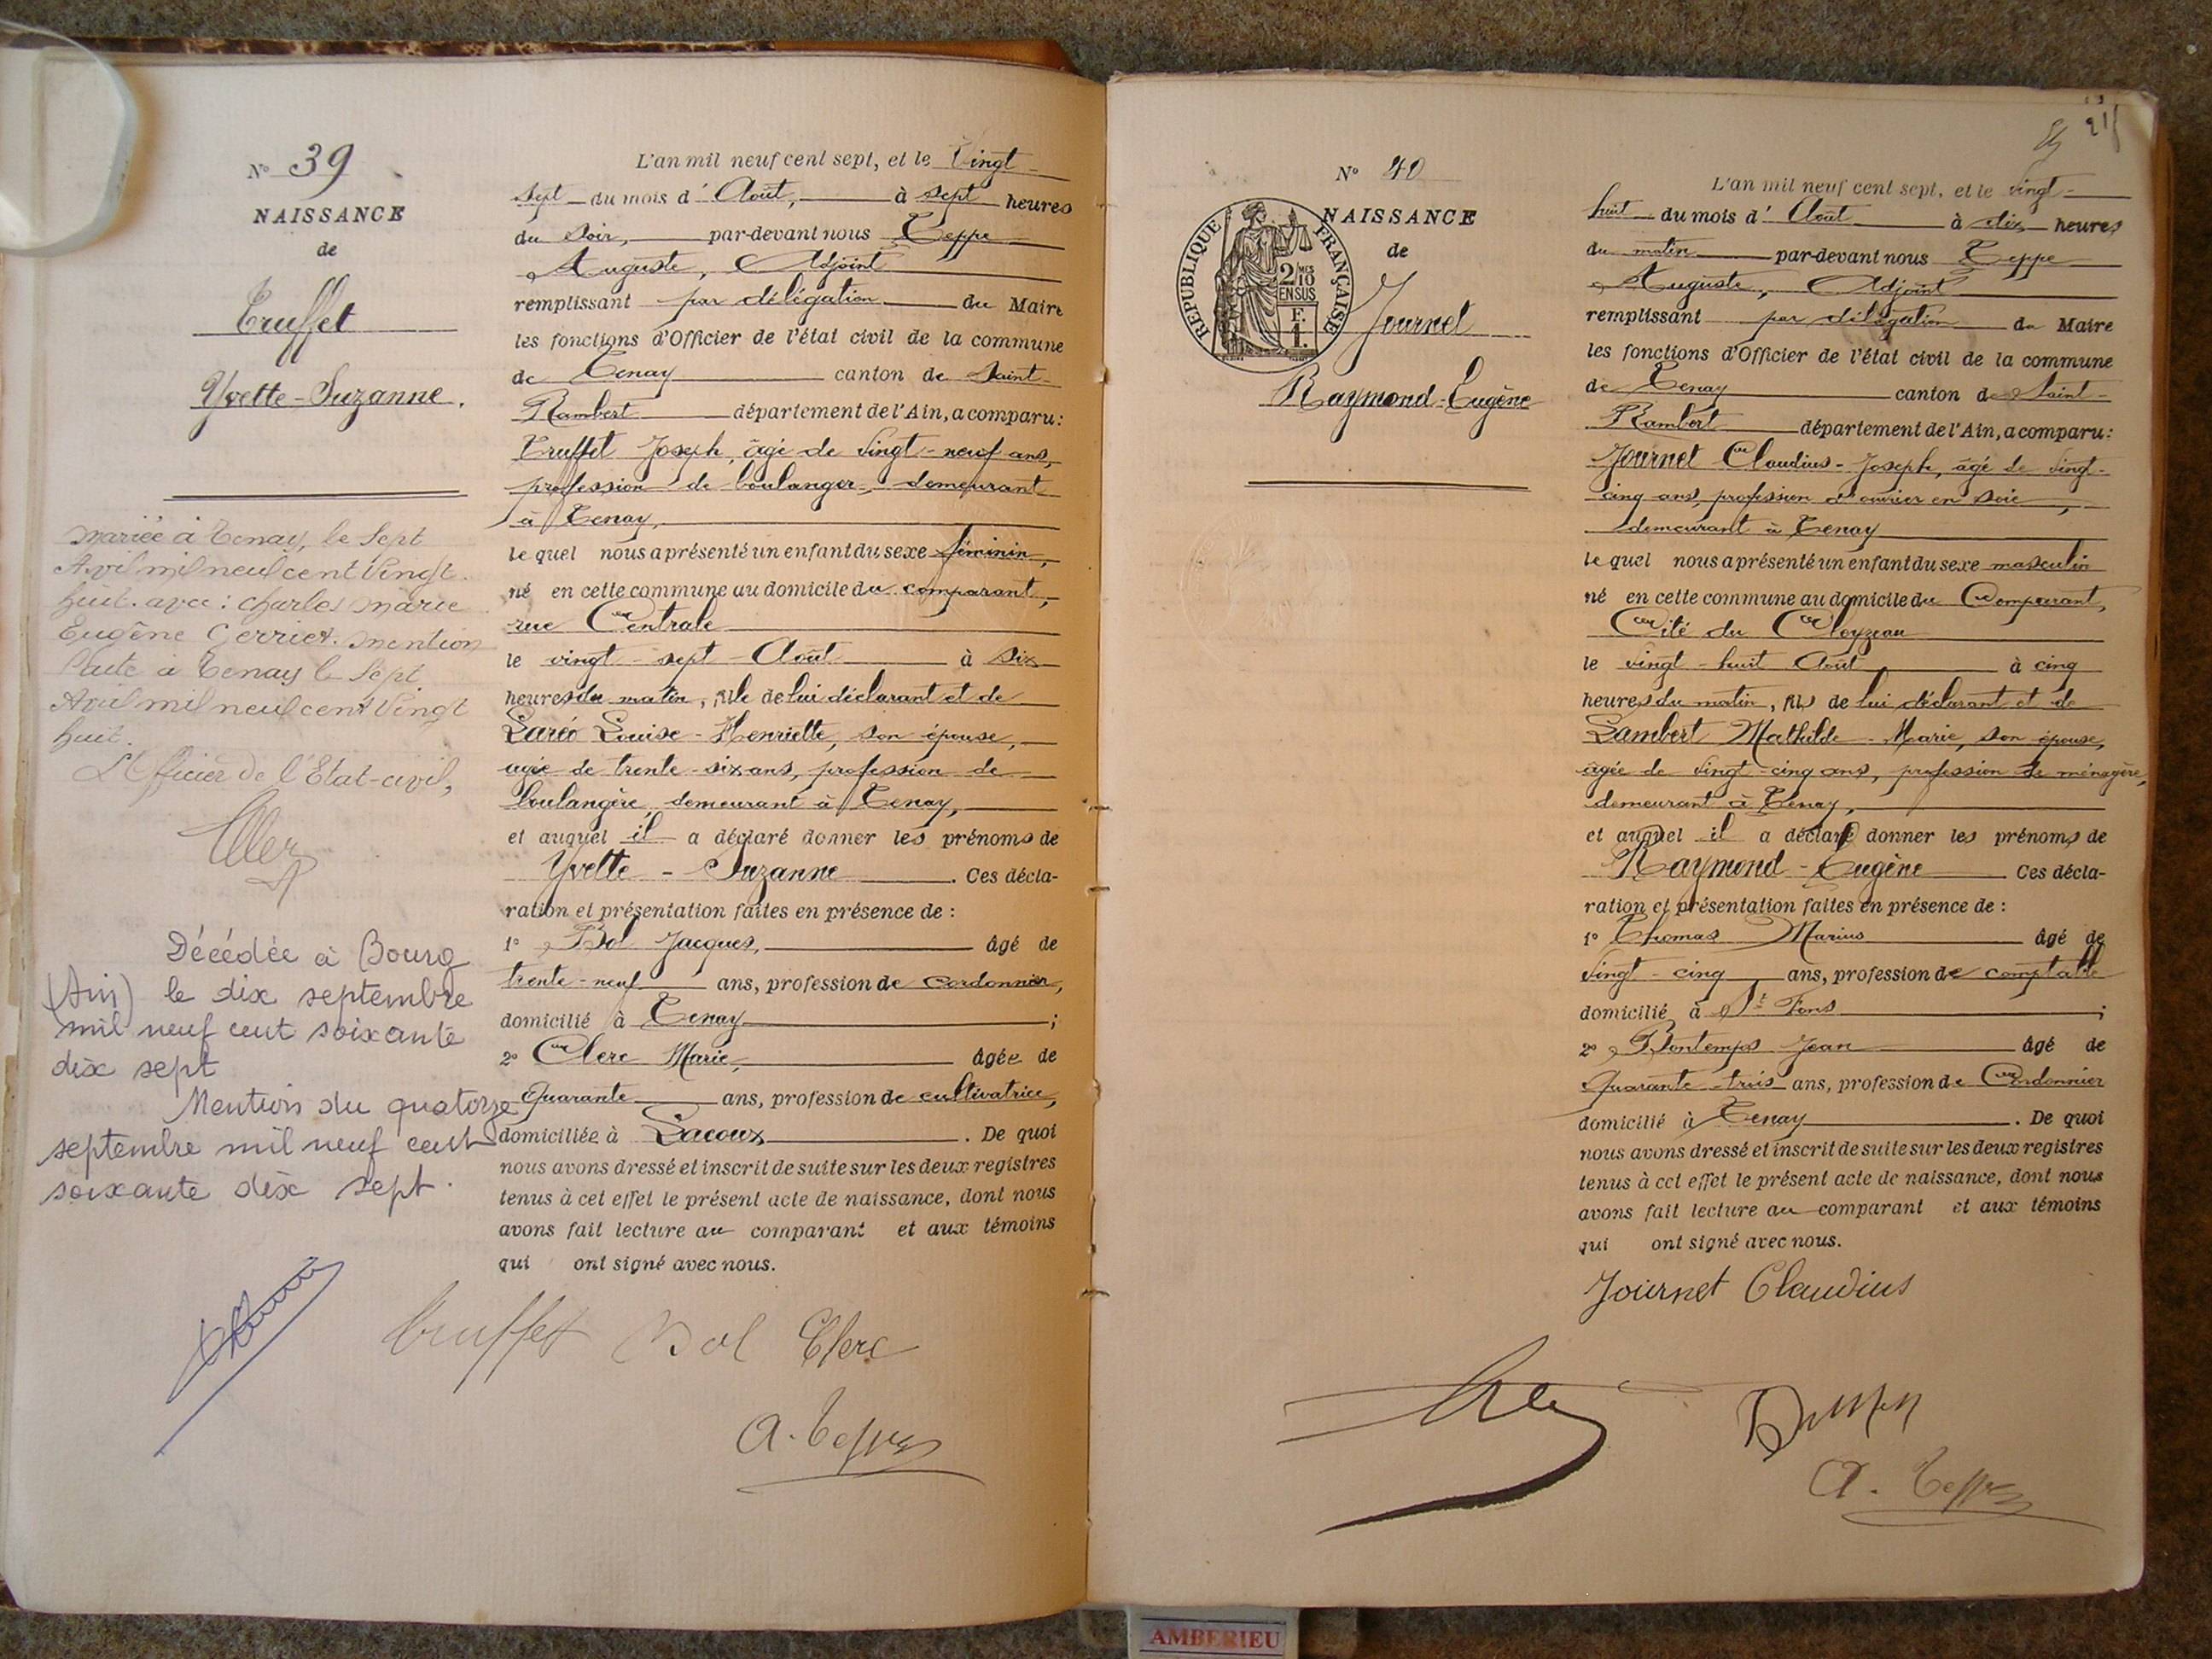 N° 39
NAISSANCE
de
Truffet
Yvette-Suzanne.
mariée à Tenay, le Sept
Avril mil neuf cent Vingt
huit. avec : Charles Marie
Eugène mention
faite à Tenay le Sept
Avril mil neuf cent Vingt
huit.
L'Officier de l'Etat-civil,
Décédée à Bourg
(Ain) le dix septembre
mil neuf cent soixante
dix sept
Mention du quatorze
septembre mil neuf cent
soixante dix sept.
L'an mil neuf cent sept, et le Vingt-
sept du mois d'Août, à sept heures
du soir, par-devant nous Teppe
Auguste, Adjoint
remplissant par délégation du Maire
les fonctions d'Officier de l'état civil de la commune
de Tenay canton de Saint-
Rambert département de l'Ain, a comparu:
Truffet Joseph, âgé de Vingt-neuf ans,
profession de boulanger, demeurant
à Tenay,
le quel nous a présenté un enfant du sexe féminin,
né en cette commune au domicile du comparant,
rue Centrale
le vingt-sept Août à six
heures du matin, fille de lui déclarant et de
Louise-Henriette, son épouse,
agée de trente-six ans, profession de
boulangère, demeurant à Tenay,
et auquel il a déclaré donner les prénoms de
Yvette-Suzanne. Ces décla-
ration et présentation faites en présence de :
1° Bol Jacques, âgé de
trente-neuf ans, profession de cordonnier,
domicilié à Tenay ;
2° Clerc Marie, âgée de
Quarante ans, profession de cultivatrice,
domiciliée à Lacoux. De quoi
nous avons dressé et inscrit de suite sur les deux registres
tenus à cet effet le présent acte de naissance, dont nous
avons fait lecture au comparant et aux témoins
qui ont signé avec nous.
Truffet Bol Clerc
A. Teppe
N° 40
NAISSANCE
de
Journet
Raymond-Eugène
RÉPUBLIQUE FRANÇAISE
2 MES
10
EN SUS
F.
1.
L'an mil neuf cent sept, et le Vingt-
huit du mois d'Août à dix heures
du matin par-devant nous Teppe
Auguste, Adjoint
remplissant par délégation du Maire
les fonctions d'Officier de l'état civil de la commune
de Tenay canton de Saint-
Rambert département de l'Ain, a comparu:
Journet Claudius-Joseph, âgé de Vingt-
cinq ans, profession d'ouvrier en soie,
demeurant à Tenay
le quel nous a présenté un enfant du sexe masculin
né en cette commune au domicile du Comparant,
Cité du Cloyzeau
le vingt-huit Août à cinq
heures du matin, fils de lui déclarant et de
Lambert Mathilde-Marie, son épouse,
âgée de Vingt-cinq ans, profession de ménagère,
demeurant à Tenay,
et auquel il a déclaré donner les prénoms de
Raymond-Eugène Ces décla-
ration et présentation faites en présence de :
1° Thomas Marius âgé de
Vingt-cinq ans, profession de comptable
domicilié à St Fons ;
2° Bontemps Jean âgé de
Quarante-trois ans, profession de Cordonnier
domicilié à Tenay. De quoi
nous avons dressé et inscrit de suite sur les deux registres
tenus à cet effet le présent acte de naissance, dont nous
avons fait lecture au comparant et aux témoins
qui ont signé avec nous.
Journet Claudius
A. Teppe
AMBERIEU